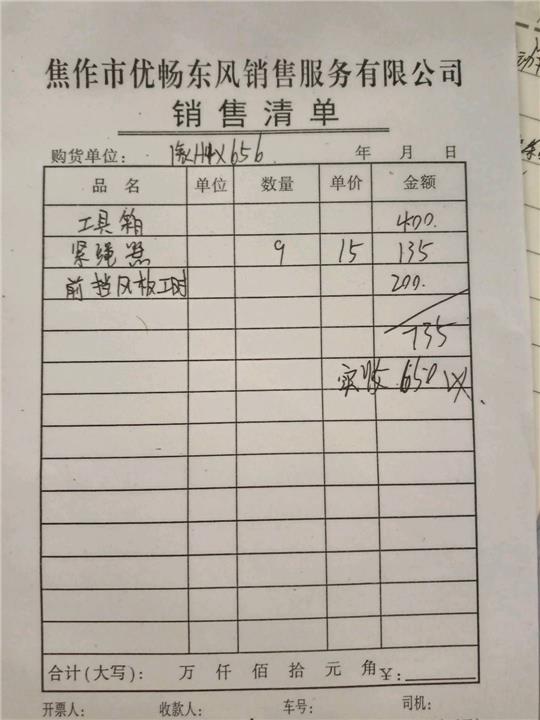 焦作市优畅东风销售服务有限公司
销售清单
购货单位： HX656 年 月 日
品名 单位 数量 单价 金额
工具箱 400.
紧绳器 9 15 135
前挡风板工时 200.
735
实收 650
合计(大写)： 万 仟 佰 拾 元 角 ¥:
开票人： 收款人： 车号： 司机：